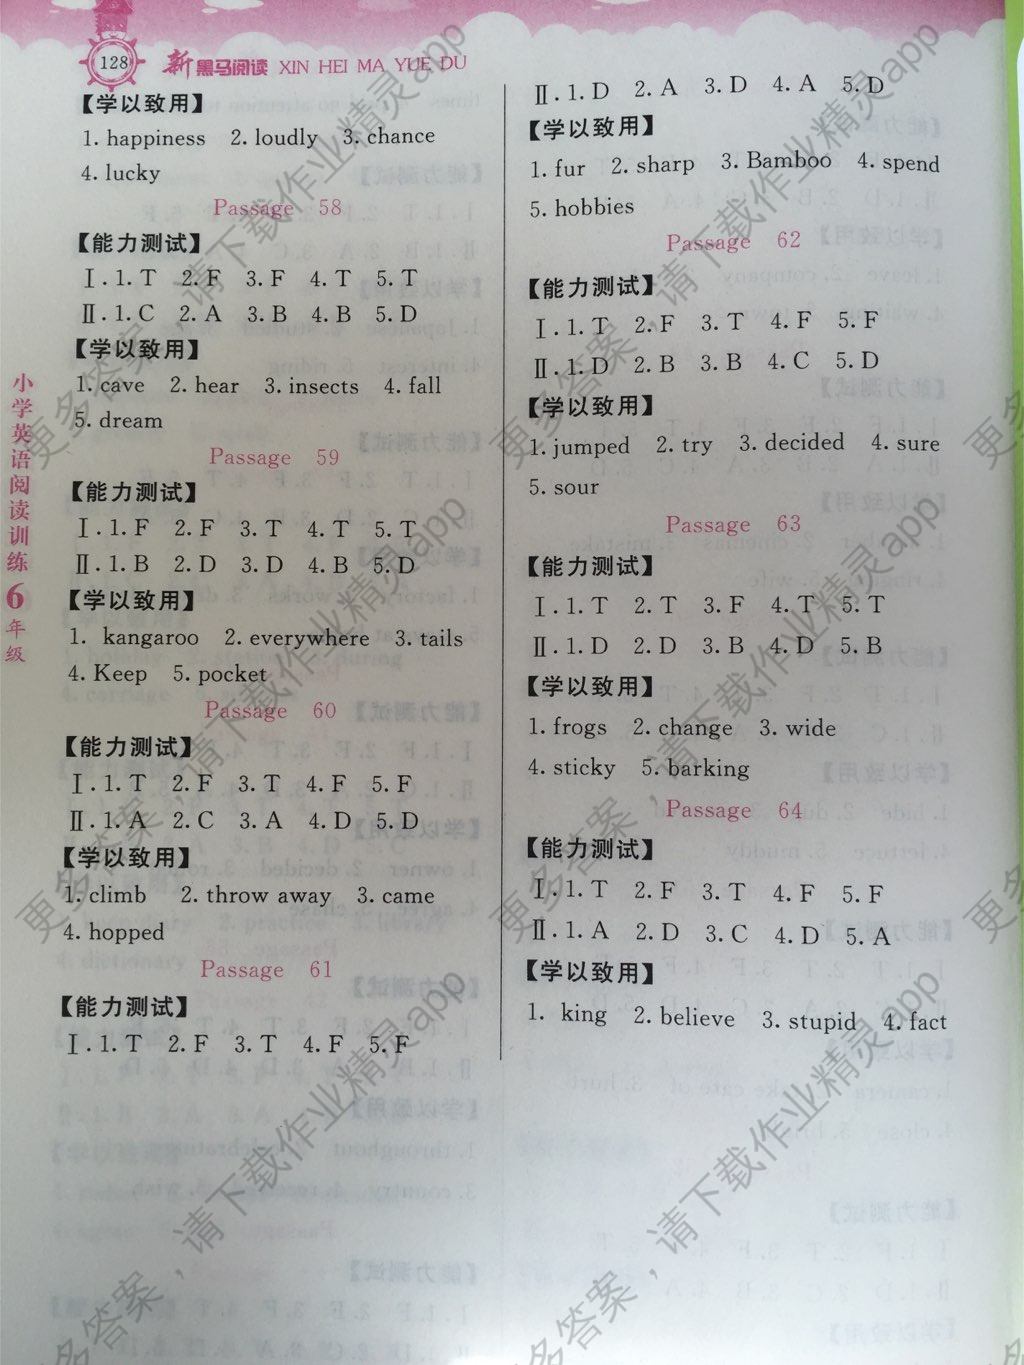 128
新黑马阅读 XIN HEI MA YUE DU
【学以致用】
1. happiness 2. loudly 3. chance
4. lucky
Passage 58
【能力测试】
Ⅰ. 1. T 2. F 3. F 4. T 5. T
Ⅱ. 1. C 2. A 3. B 4. B 5. D
【学以致用】
1. cave 2. hear 3. insects 4. fall
5. dream
Passage 59
【能力测试】
Ⅰ. 1. F 2. F 3. T 4. T 5. T
Ⅱ. 1. B 2. D 3. D 4. B 5. D
【学以致用】
1. kangaroo 2. everywhere 3. tails
4. Keep 5. pocket
Passage 60
【能力测试】
Ⅰ. 1. T 2. F 3. T 4. F 5. F
Ⅱ. 1. A 2. C 3. A 4. D 5. D
【学以致用】
1. climb 2. throw away 3. came
4. hopped
Passage 61
【能力测试】
Ⅰ. 1. T 2. F 3. T 4. F 5. F
Ⅱ. 1. D 2. A 3. D 4. A 5. D
【学以致用】
1. fur 2. sharp 3. Bamboo 4. spend
5. hobbies
Passage 62
【能力测试】
Ⅰ. 1. T 2. F 3. T 4. F 5. F
Ⅱ. 1. D 2. B 3. B 4. C 5. D
【学以致用】
1. jumped 2. try 3. decided 4. sure
5. sour
Passage 63
【能力测试】
Ⅰ. 1. T 2. T 3. F 4. T 5. T
Ⅱ. 1. D 2. D 3. B 4. D 5. B
【学以致用】
1. frogs 2. change 3. wide
4. sticky 5. barking
Passage 64
【能力测试】
Ⅰ. 1. T 2. F 3. T 4. F 5. F
Ⅱ. 1. A 2. D 3. C 4. D 5. A
【学以致用】
1. king 2. believe 3. stupid 4. fact
小学英语阅读训练6年级
更多答案，请下载作业精灵app
更多答案，请下载作业精灵app
更多答案，请下载作业精灵app
更多答案，请下载作业精灵app
更多答案，请下载作业精灵app
更多答案，请下载作业精灵app